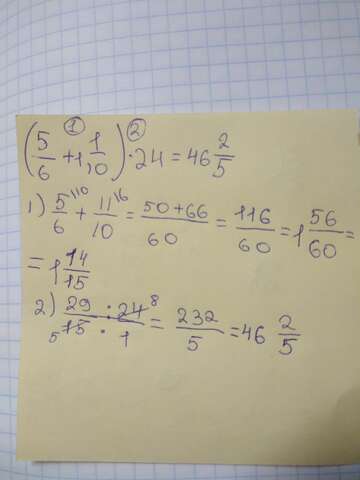 ① ②
(5/6 + 1 1/10) · 24 = 46 2/5
1) 5/6 ^(10 + 11/10 ^(6 = (50+66)/60 = 116/60 = 1 56/60 =
= 1 14/15
2) (29 · 24 8)/(5 15 · 1) = 232/5 = 46 2/5